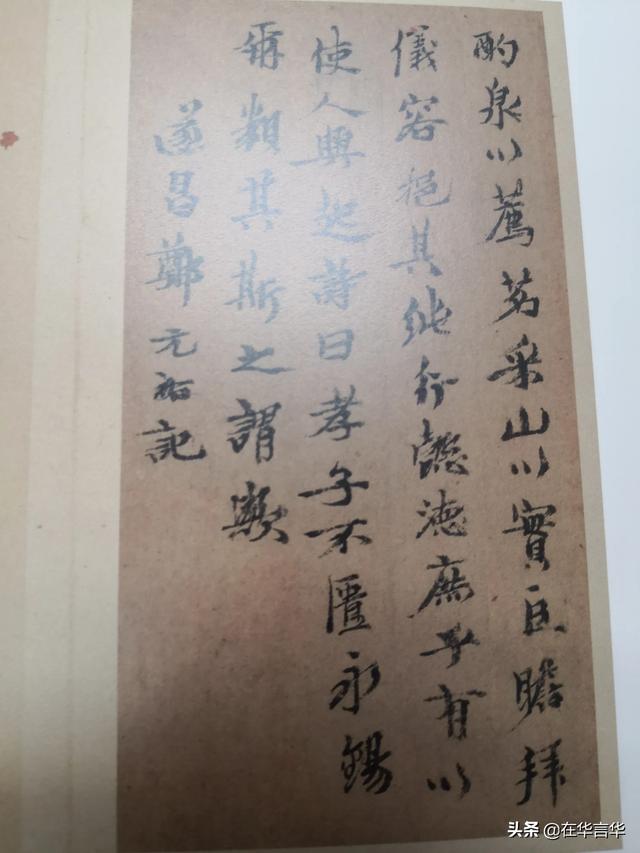 酌泉以薦茗采山以實豆瞻拜
儀容挹其純行懿德庶乎有以
使人興起詩曰孝子不匱永錫
爾類其斯之謂歟
遂昌鄭元祐記
头条 @在华言华